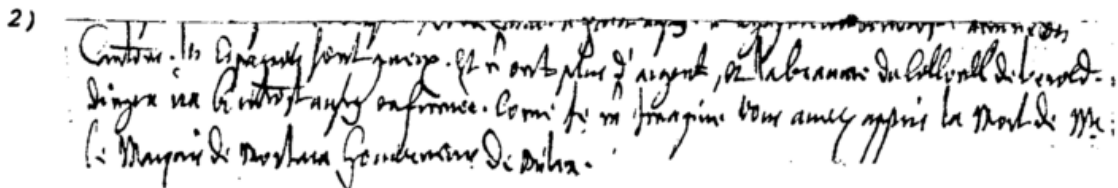 2)
Cantons. les Espagnols sont gueux. Et n'ont plus d'argent, et l'alreance du Collonell de berold-
dingen va bientost aussy en fumee. Come je m'imagine vous aurez appris la Mort de Mr:
le Marquis de Mortara Gouverneur de Milan.